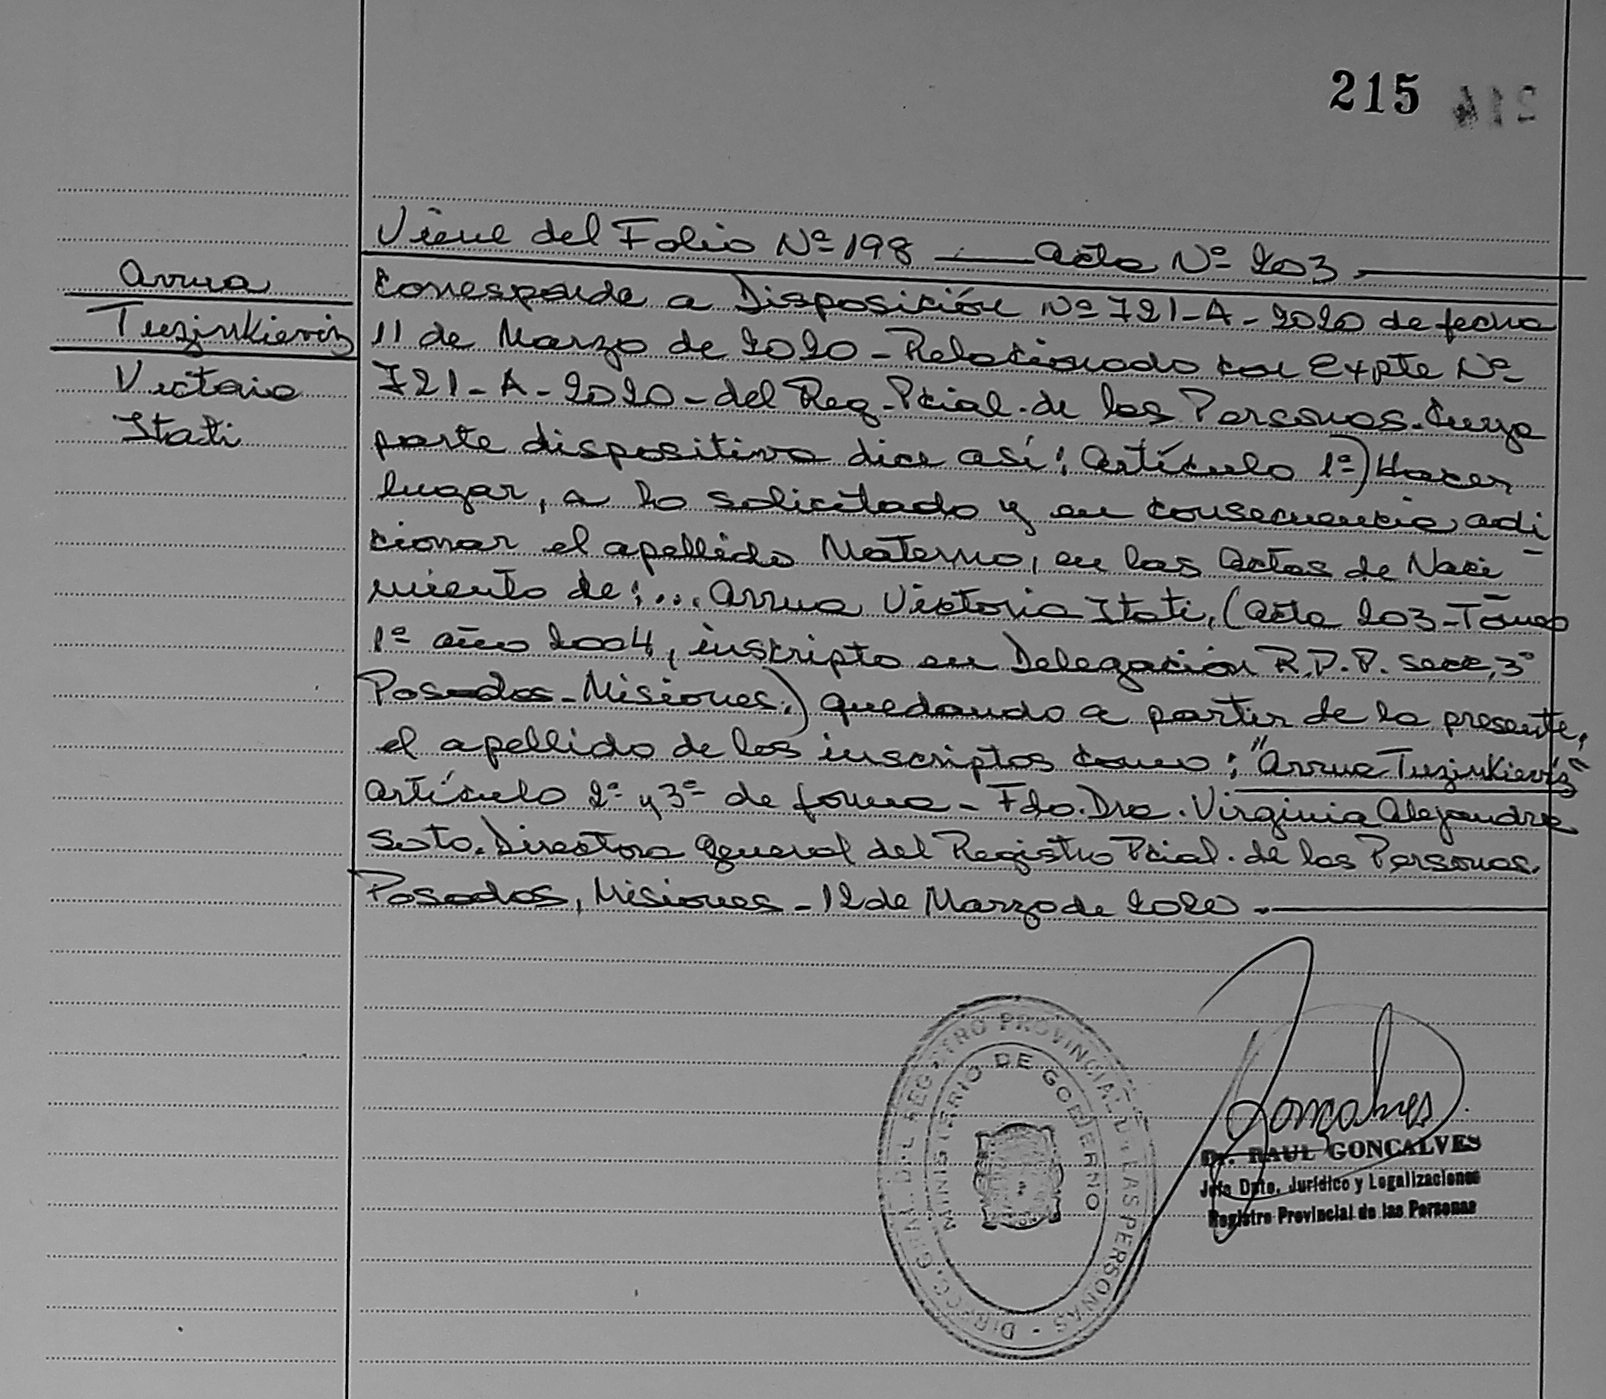 215
Arrua
Tuzinkieviz
Victoria
Itati
Viene del Folio Nº 198 — Acta Nº 203
Corresponde a Disposición Nº 721-A-2020 de fecha
11 de Marzo de 2020 - Relacionado con Expte Nº
721-A-2020- del Reg. Pcial. de las Personas. Cuya
parte dispositiva dice así: Artículo 1º) Hacer
lugar, a lo solicitado y en consecuencia adi
cionar el apellido Materno, en las Actas de Naci
miento de:... Arrua Victoria Itati, (Acta 203-Tomo
1º año 2004, inscripto en Delegación R.P.P. secc, 3º
Posadas-Misiones.) quedando a partir de la presente,
el apellido de los inscriptos como: "Arrua Tuzinkieviz"
Artículo 2º y 3º de forma - Fdo. Dra. Virginia Alejandra
Soto. Directora General del Registro Pcial. de las Personas.
Posadas, Misiones - 12 de Marzo de 2020.-
DIRECC. GRAL. DEL REGISTRO PROVINCIAL DE LAS PERSONAS
MINISTERIO DE GOBIERNO
Goncalves
Dr. RAUL GONCALVES
Jefe Dpto. Jurídico y Legalizaciones
Registro Provincial de las Personas